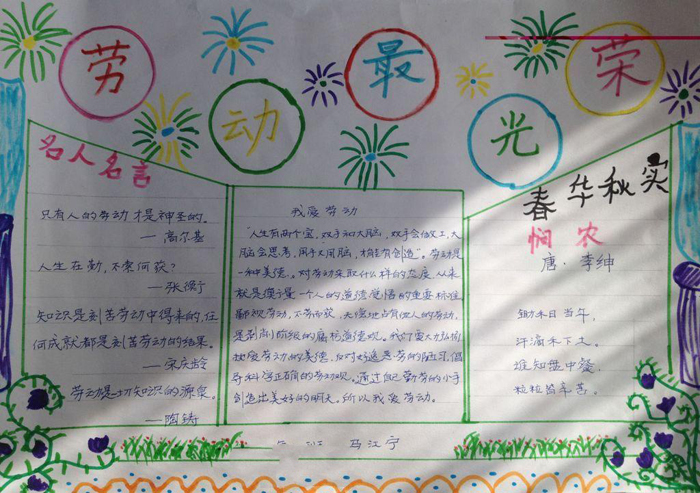 劳动最光荣
名人名言
只有人的劳动才是神圣的。
— 高尔基
人生在勤，不索何获？
— 张衡
知识是刻苦劳动中得来的，任
何成就都是刻苦劳动的结果。
— 宋庆龄
劳动是一切知识的源泉。
— 陶铸
我爱劳动
"人生有两个宝，双手和大脑，双手会做工，大
脑会思考，用手又用脑，才能有创造"。劳动是
一种美德。对劳动采取什么样的态度，从来
就是衡量一个人的道德觉悟的重要标准
鄙视劳动，不劳而获，无偿地占有他人的劳动，
是剥削阶级的腐朽道德观。我们要大力弘扬
热爱劳动的美德，反对好逸恶劳的陋习，倡
导科学正确的劳动观。通过自己勤劳的小手
创造出美好的明天。所以我爱劳动。
春华秋实
悯农
唐·李绅
锄禾日当午，
汗滴禾下土。
谁知盘中餐，
粒粒皆辛苦。
班 马江宁